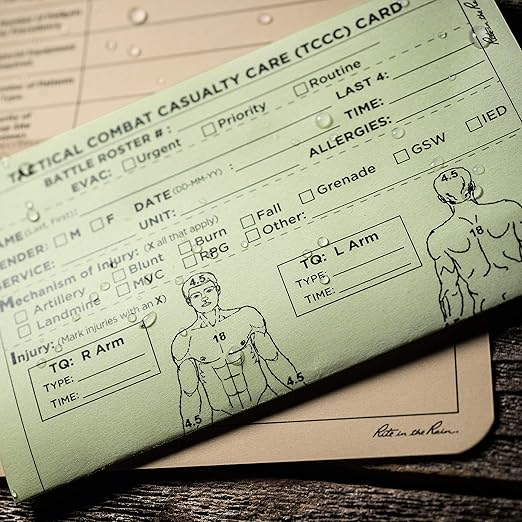 Rite in the Rain
TACTICAL COMBAT CASUALTY CARE (TCCC) CARD
BATTLE ROSTER #:
EVAC: Urgent Priority Routine
LAST 4:
NAME (Last, First):
DATE (DD-MM-YY): TIME:
GENDER: M F
UNIT: ALLERGIES:
SERVICE:
Mechanism of Injury: (X all that apply)
Artillery Blunt Burn Fall Grenade GSW IED
Landmine MVC RPG Other:
Injury: (Mark injuries with an X)
TQ: R Arm
TYPE:
TIME:
4.5
18
4.5
4.5
TQ: L Arm
TYPE:
TIME:
4.5
18
Rite in the Rain